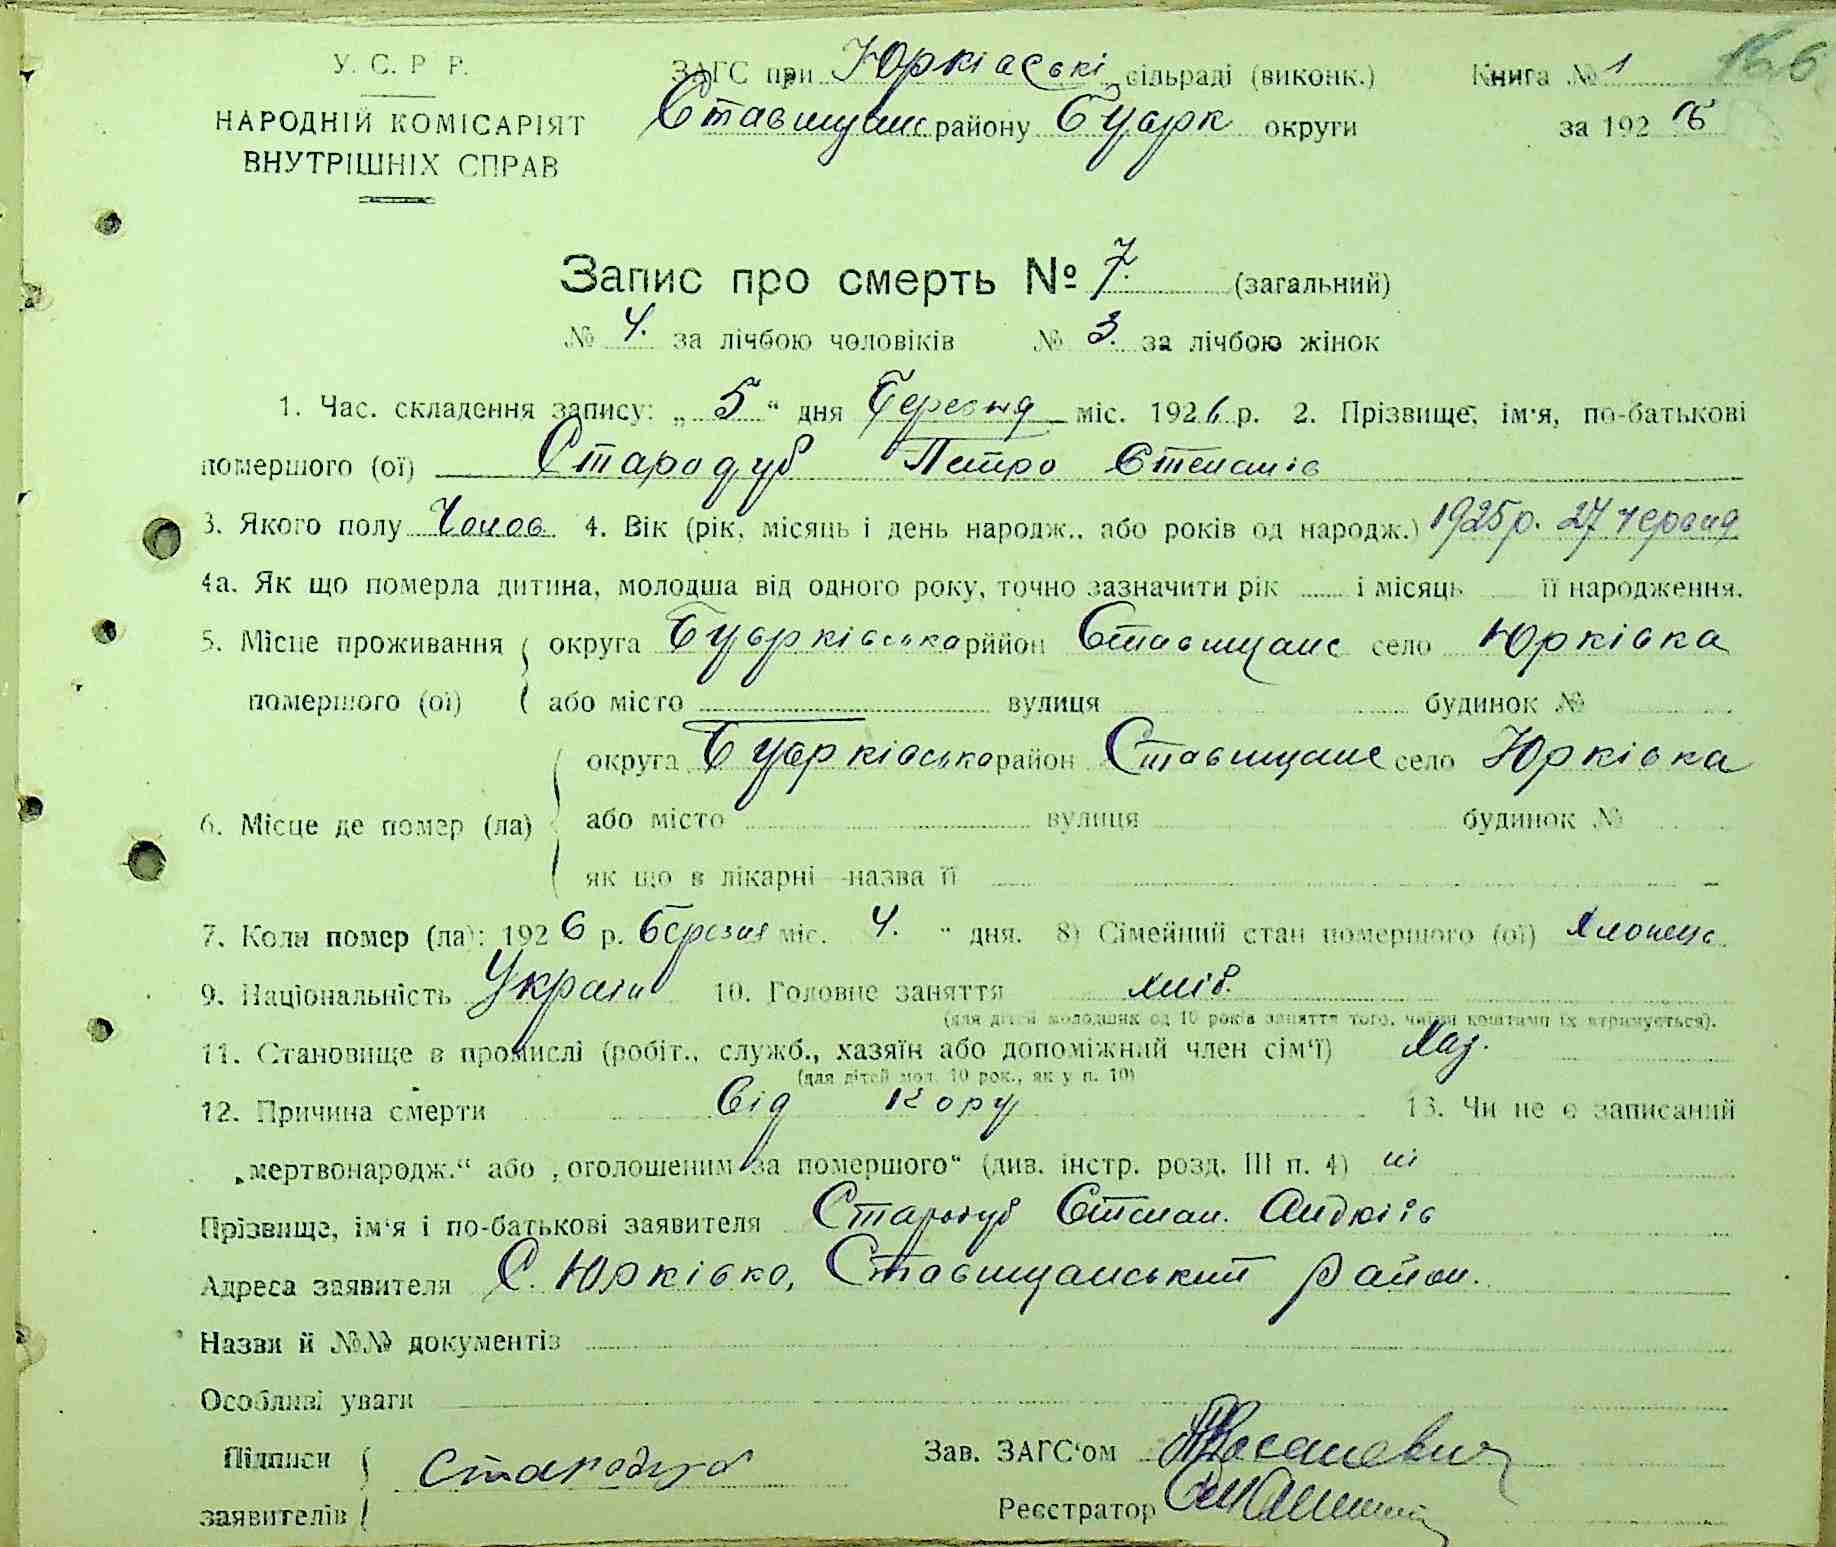 У. С. Р Р.
ЗАГС при Юрківські сільраді (виконк.) Книга № 1
НАРОДНІЙ КОМІСАРІЯТ
Ставищанс району округи за 192
ВНУТРІШНІХ СПРАВ
Запис про смерть № 7. (загальний)
№ 4. за лічбою чоловіків № 3. за лічбою жінок
1. Час. складення запису: „ 5 “ дня Березня міс. 1926 р. 2. Прізвище, ім'я, по-батькові
помершого (ої) Стародуб Петро Степанів
3. Якого полу Чолов 4. Вік (рік, місяць і день народж., або років од народж.) 1925 р. 27 червня
4а. Як що померла дитина, молодша від одного року, точно зазначити рік і місяць її народження.
5. Місце проживання округа район Ставищанс село Юрківка
помершого (ої) або місто вулиця будинок №
округа район Ставищанс село Юрківка
6. Місце де помер (ла) або місто вулиця будинок №
як що в лікарні—назва її
7. Коли помер (ла): 1926 р. березня міс. 4. “ дня. 8) Сімейний стан помершого (ої) Хлопець
9. Національність 10. Головне заняття хліб.
(для дітей молодших од 10 років заняття того, чиїми коштами їх втримується).
11. Становище в промислі (робіт., служб., хазяїн або допоміжний член сім'ї) Хаз.
(для дітей мол. 10 рок., як у п. 10)
12. Причина смерти від кору 13. Чи не є записаний
„мертвонародж.“ або „оголошеним за помершого“ (див. інстр. розд. III п. 4) ні
Прізвище, ім'я і по-батькові заявителя Стародуб Степан. Андріїв
Адреса заявителя С. Юрківка, Ставищанський район.
Назви й №№ документів
Особливі уваги
Підписи Стародуб Зав. ЗАГС'ом
заявителів Реєстратор